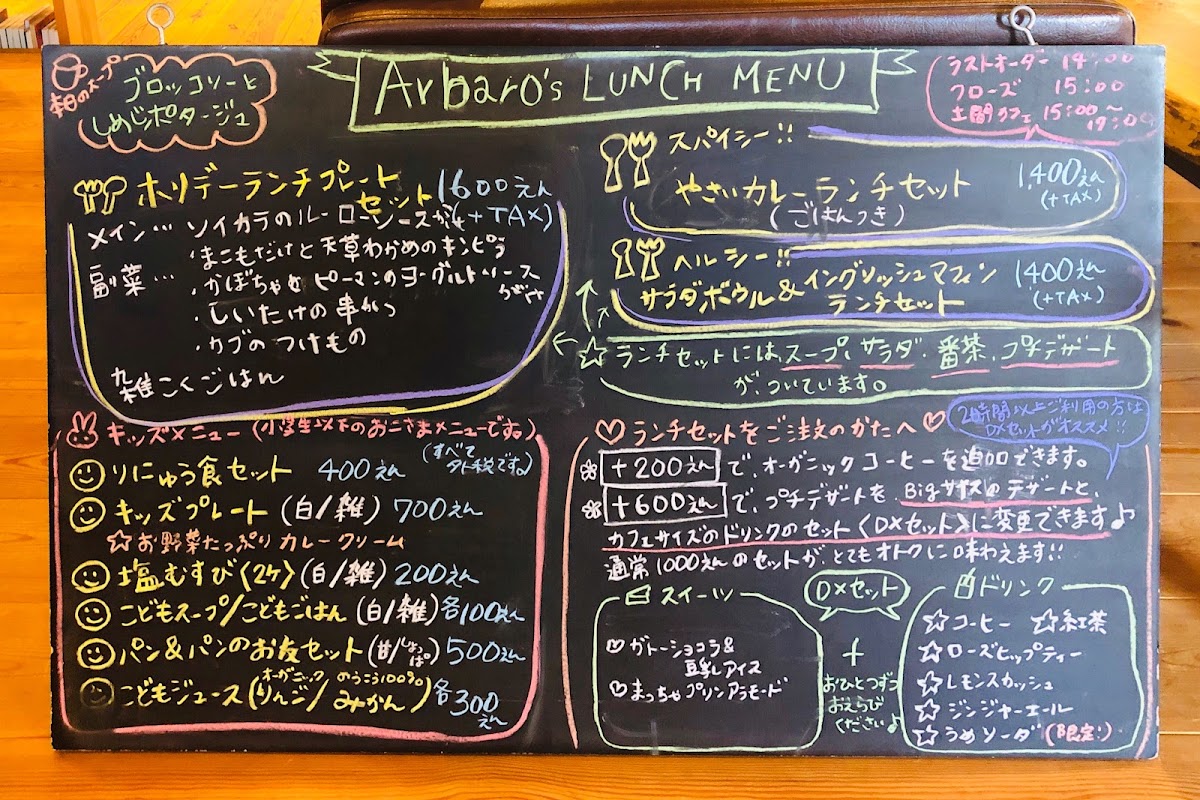 本日のスープ
ブロッコリーと
しめじポタージュ
Arbaro's LUNCH MENU
ラストオーダー 14:00
クローズ 15:00
土間カフェ 15:00〜
17:00
ホリデーランチプレート
セット 1600えん
(+TAX)
メイン… ソイカラのルーローソースがけ
副菜… ・まこもだけと天草わかめのキンピラ
・かぼちゃとピーマンのヨーグルトソース
がけ
・しいたけの串かつ
・カブのつけもの
雑こくごはん
スパイシー!!
やさいカレーランチセット
(ごはんつき)
1,400えん
(+TAX)
ヘルシー!!
サラダボウル&イングリッシュマフィン
ランチセット
1400えん
(+TAX)
☆ランチセットには、スープ、サラダ・番茶・プチデザート
がついています。
キッズメニュー(小学生以下のおこさまメニューです。)
(すべて
外税です。)
りにゅう食セット 400えん
キッズプレート(白/雑)700えん
☆お野菜たっぷりカレークリーム
塩むすび〈2ケ〉(白/雑)200えん
こどもスープ/こどもごはん(白/雑)各100えん
パン&パンのお友セット(甘/しょっぱ)500えん
オーガニック のうこう100%
こどもジュース(りんご/みかん)各300
えん
♡ランチセットをご注文のかたへ♡
2時間以上ご利用の方は
DXセットがオススメ!!
+200えん で、オーガニックコーヒーを追加できます。
+600えん で、プチデザートを、Bigサイズのデザートと、
カフェサイズのドリンクのセット〈DXセット〉に変更できます♪
通常1000えんのセットが、とてもオトクに味わえます!!
スイーツ
♡ガトーショコラ&
豆乳アイス
♡まっちゃプリンアラモード
DXセット
+
おひとつずつ
おえらび
ください♪
ドリンク
☆コーヒー ☆紅茶
☆ローズヒップティー
☆レモンスカッシュ
☆ジンジャーエール
☆うめソーダ(限定!)